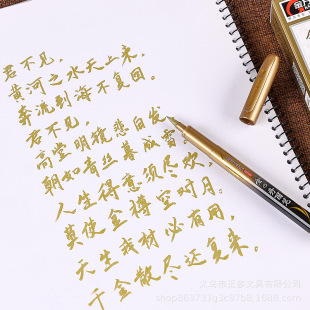 君不见,
黄河之水天上来,
奔流到海不复回。
君不见,
高堂明镜悲白发
朝如青丝暮成雪。
人生得意须尽欢,
莫使金樽空对月。
天生我材必有用,
千金散尽还复来。
义乌市正多文具有限公司